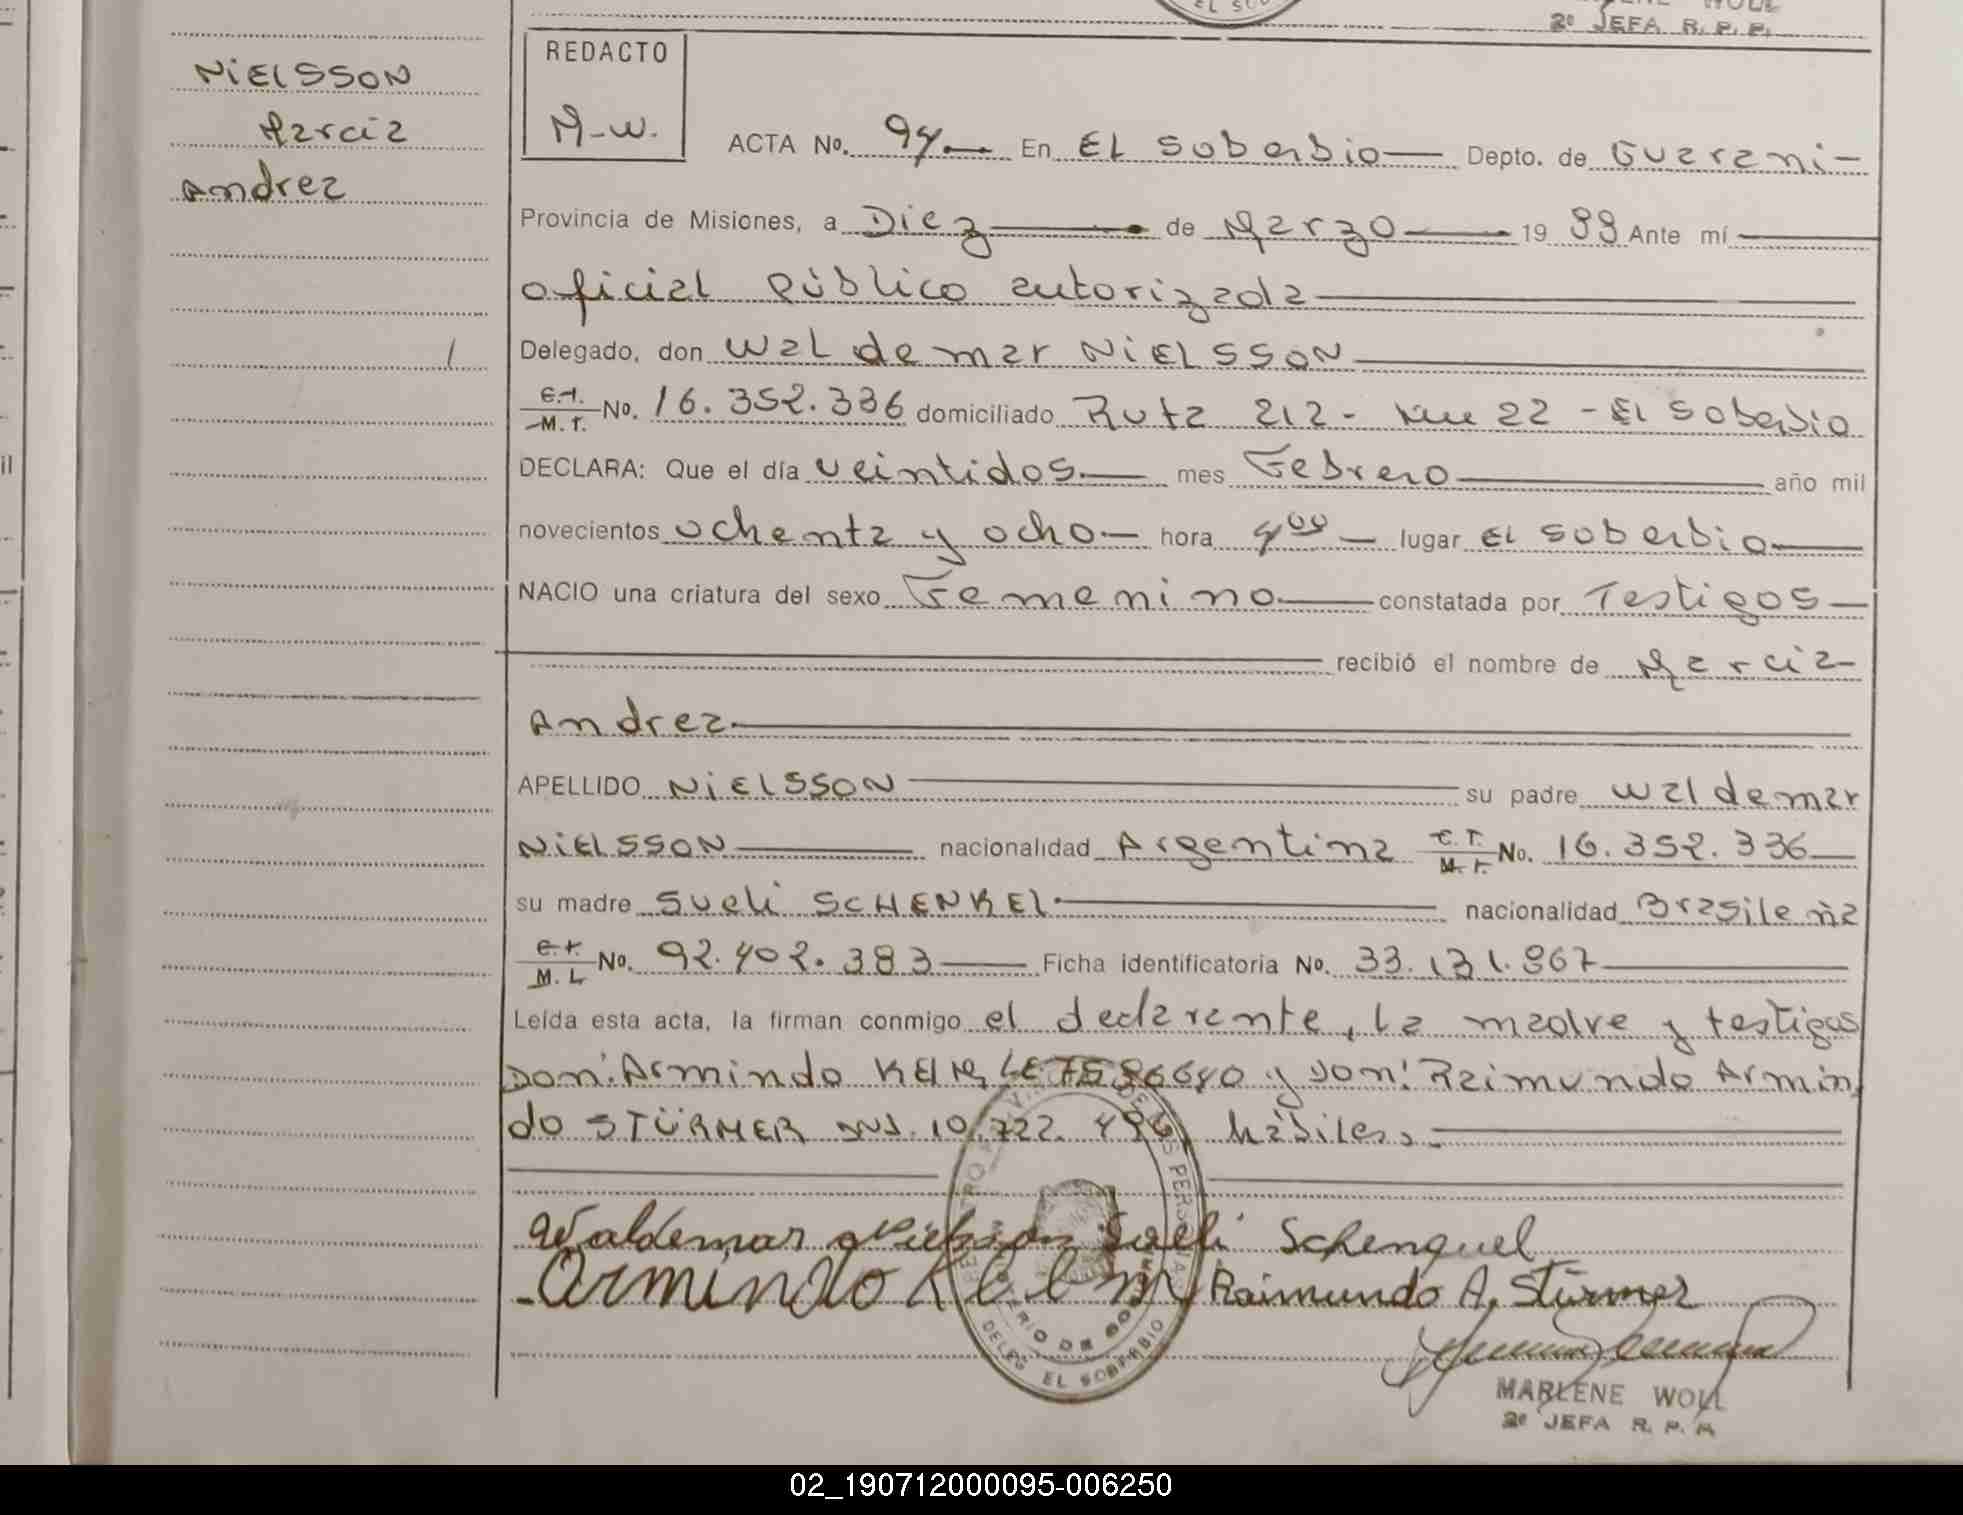 2º JEFA R. P. P.
NIELSSON
Marcia
Andrea
REDACTO
M-W.
ACTA No. 94 En EL Soberbio Depto. de Guarani
Provincia de Misiones, a Diez de Marzo 19 88 Ante mí
oficial Público autorizada
Delegado, don Waldemar NIELSSON
M. I. No. 16.352.336 domiciliado Ruta 212 - Km 22 - El Soberbio
DECLARA: Que el día veintidos mes Febrero año mil
novecientos ochenta y ocho hora 4⁰⁰ lugar EL Soberbio
NACIO una criatura del sexo Femenino constatada por Testigos
recibió el nombre de Marcia
Andrea
APELLIDO NIELSSON su padre Waldemar
NIELSSON nacionalidad Argentina No. 16.352.336
su madre Sueli SCHENKEL nacionalidad Brasileña
M. I. No. 92.402.383 Ficha identificatoria No. 33.131.867
Leída esta acta, la firman conmigo el declarante, la madre y testigos
Don: Armindo LE 7586640 y Don: Raimundo Armin
do STÜRMER DNI. 10.722.496, hábiles.
Waldemar Nielsson Sueli Schenquel
Armindo Raimundo A. Stürmer
DELEG EL SOBERBIO
MARLENE WOLL
2º JEFA R. P. P.
02_190712000095-006250